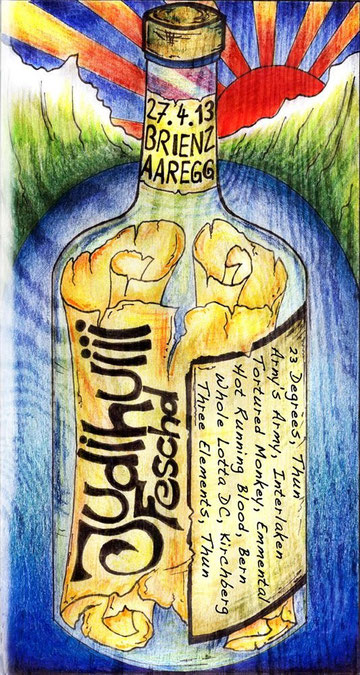 27.4.13
BRIENZ
AAREGG
Judihuiii
Fescht
23 Degrees, Thun
Army's Army, Interlaken
Tortured Monkey, Emmental
Hot Running Blood, Bern
Whole Lotta DC, Kirchberg
Three Elements, Thun